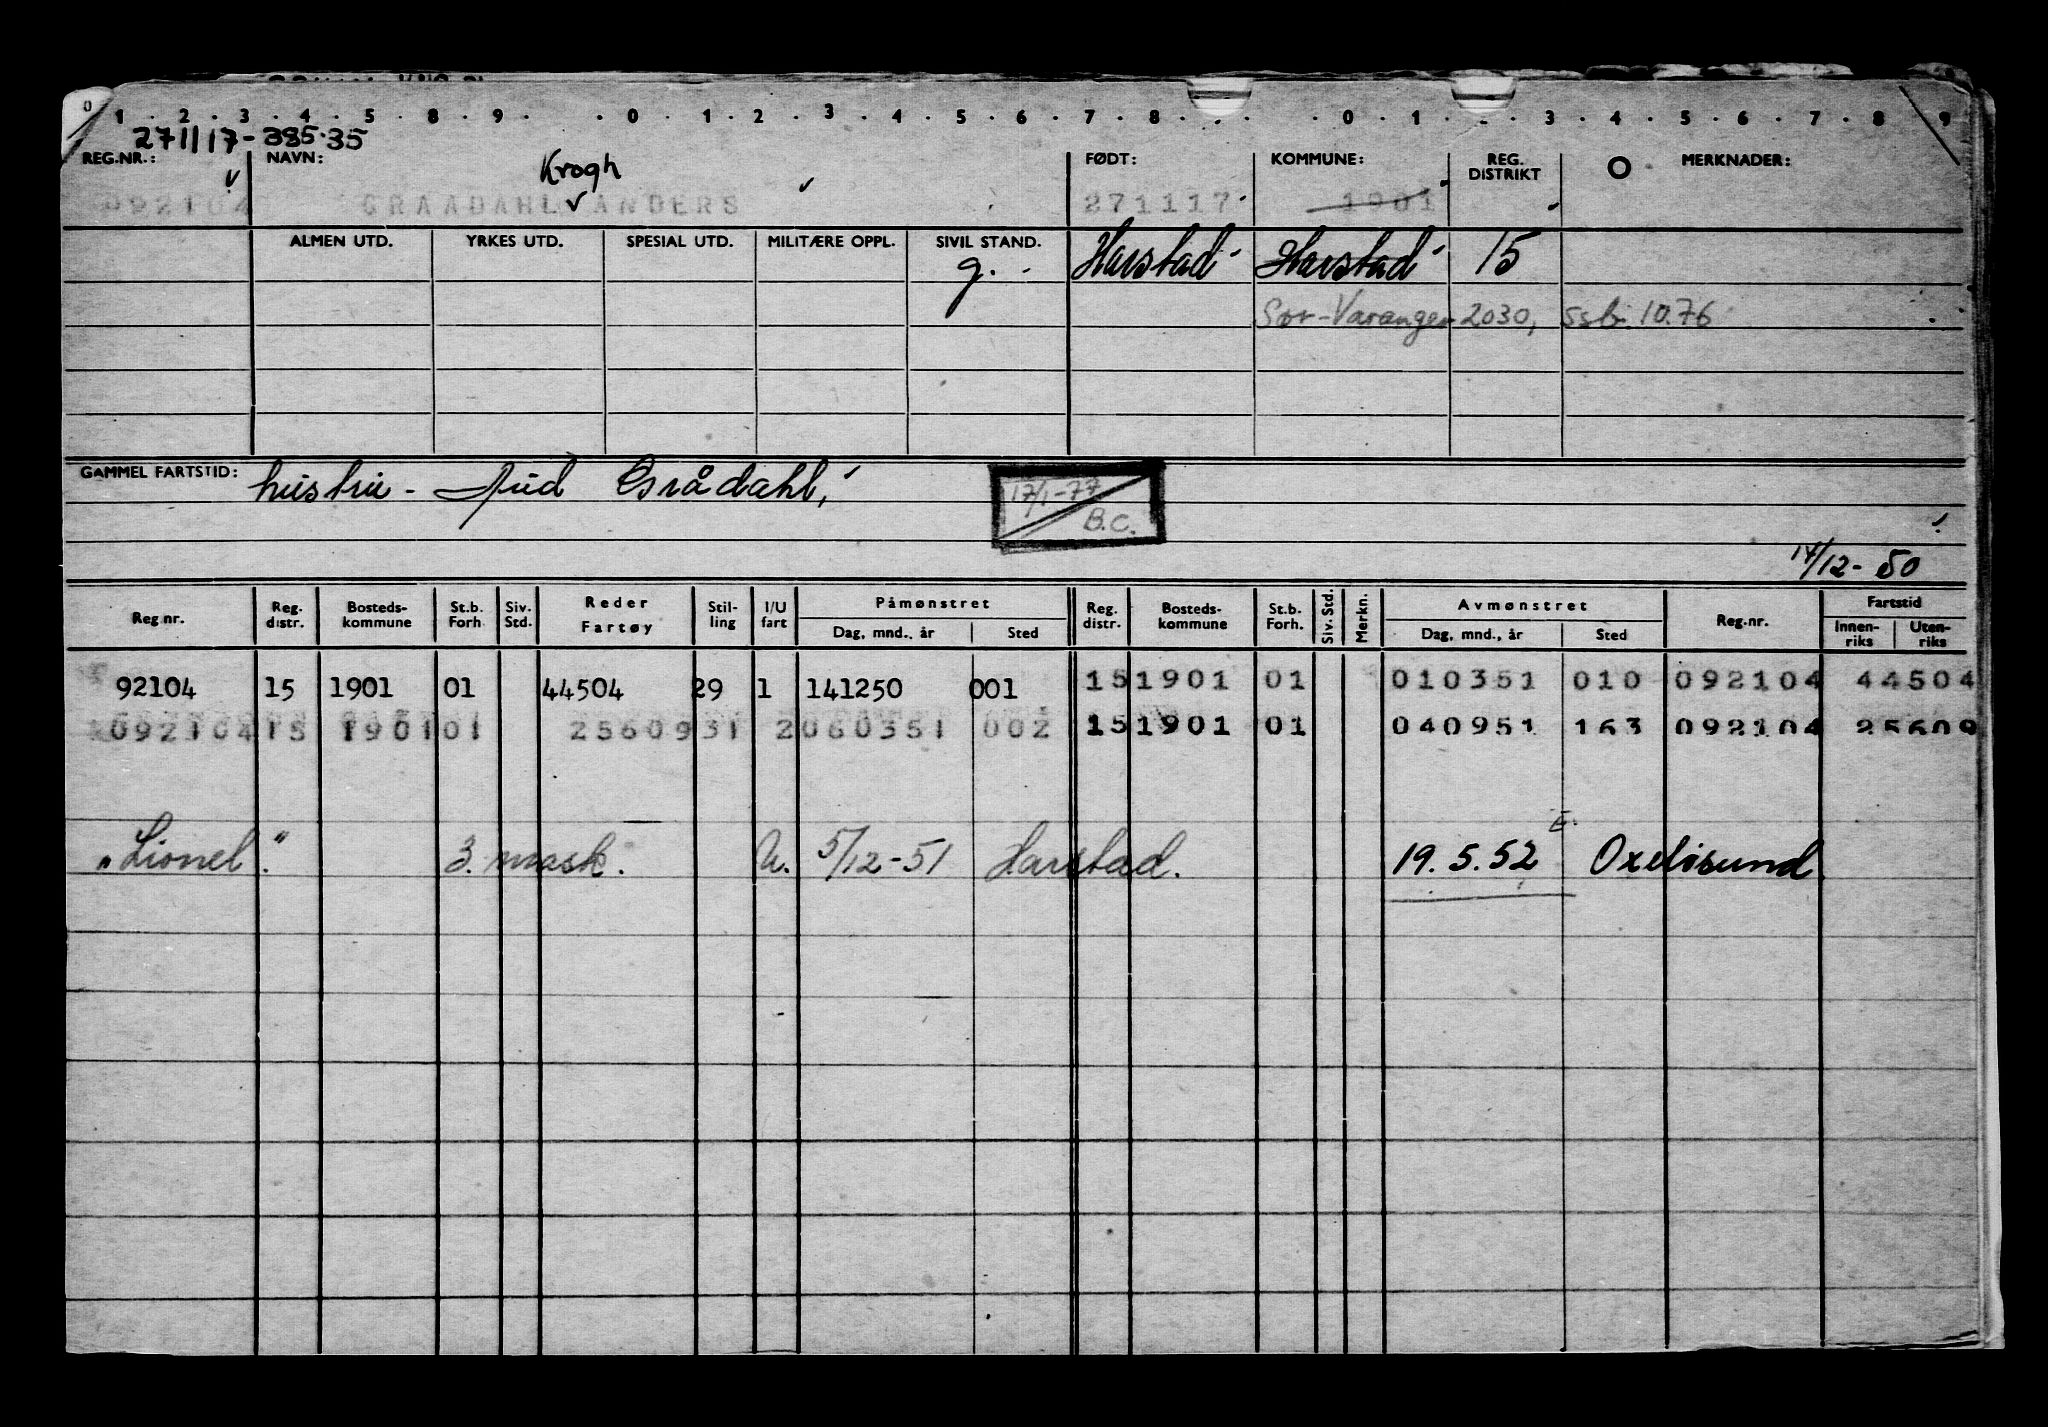 0 1 . 2 . 3 . 4 . 5 . 8 . 9 . . 0 . 1 . 2 . 3 . 4 . 5 . 6 . 7 . 8 . . . . 0 . 1 . . 3 . 4 . 5 . 6 . 7 . 8 . 9
271117-385.35
REG.NR.: NAVN: FØDT: KOMMUNE: REG. DISTRIKT O MERKNADER:
Krogh
092104 GRAADAHL ANDERS 271117 1901
ALMEN UTD. YRKES UTD. SPESIAL UTD. MILITÆRE OPPL. SIVIL STAND.
g. Harstad Harstad 15
Sør-Varanger 2030, ssb. 10.76
GAMMEL FARTSTID: hustru - Aud Grådahl,
17/1-77
B.C.
14/12-50
Reg.nr. Reg. distr. Bosteds-kommune St.b. Forh Siv. Std. Reder Fartøy Stil-ling I/U fart Påmønstret Dag, mnd., år Sted Reg. distr. Bosteds-kommune St.b. Forh. Siv. Std. Merkn. Avmønstret Dag, mnd., år Sted Reg.nr. Fartstid Innen-riks Uten-riks
92104 15 1901 01 44504 29 1 141250 001 15 1901 01 010351 010 092104 44504
092104 15 1901 01 25609 31 2 060351 002 15 1901 01 040951 163 092104 25609
"Lionel". 3. mask. U. 5/12-51 Harstad. 19.5.52 E. Oxeløsund